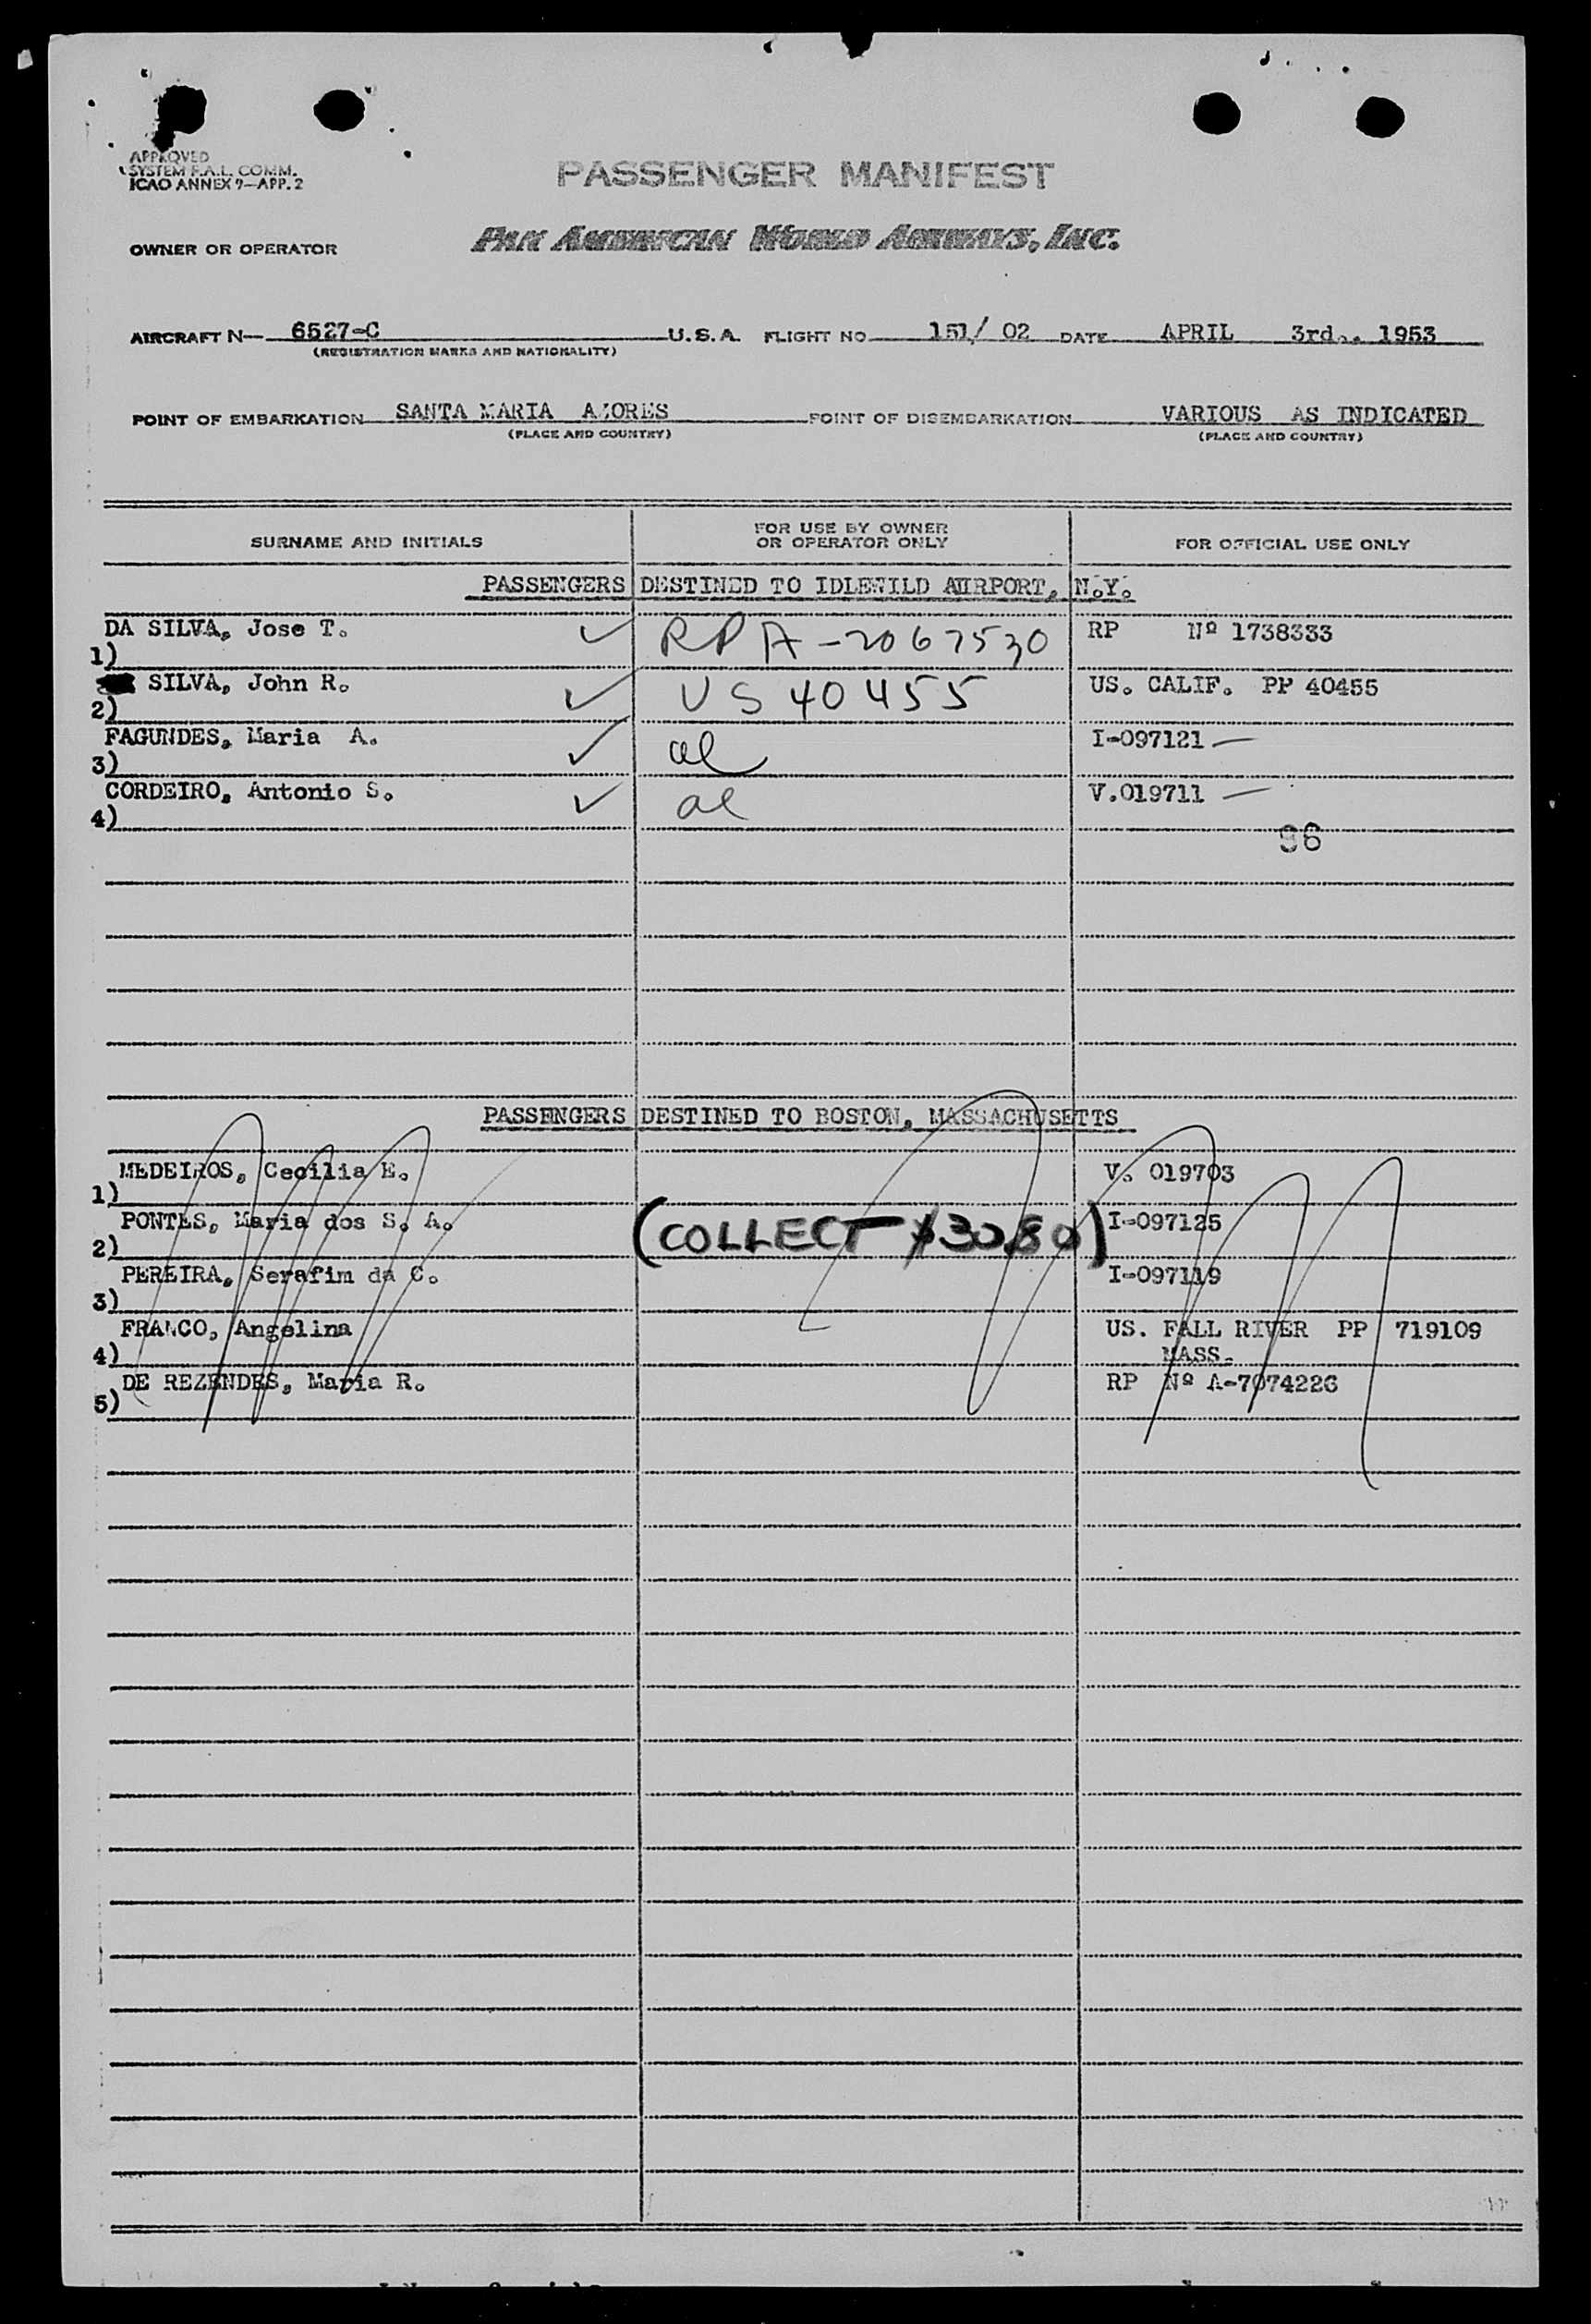 APPROVED
SYSTEM F.A.L. COMM.
ICAO ANNEX 9—APP. 2
PASSENGER MANIFEST
OWNER OR OPERATOR PAN AMERICAN WORLD AIRWAYS, INC.
AIRCRAFT N— 6527-C U.S.A. FLIGHT NO 151/ 02 DATE APRIL 3rd.. 1953
(REGISTRATION MARKS AND NATIONALITY)
POINT OF EMBARKATION SANTA MARIA AZORES POINT OF DISEMBARKATION VARIOUS AS INDICATED
(PLACE AND COUNTRY) (PLACE AND COUNTRY)
SURNAME AND INITIALS FOR USE BY OWNER OR OPERATOR ONLY FOR OFFICIAL USE ONLY
PASSENGERS DESTINED TO IDLEWILD AIRPORT, N.Y.
1) DA SILVA, Jose T. ✓ RP A-2067530 RP Nº 1738333
2) SILVA, John R. ✓ US 40455 US. CALIF. PP 40455
3) FAGUNDES, Maria A. ✓ al I-097121 —
4) CORDEIRO, Antonio S. ✓ al V.019711 —
96
PASSENGERS DESTINED TO BOSTON, MASSACHUSETTS
1) MEDEIROS, Cecilia E. V. 019703
2) PONTES, Maria dos S. A. (COLLECT $30.80) I-097125
3) PEREIRA, Serafim da C. I-097119
4) FRANCO, Angelina US. FALL RIVER PP 719109
MASS.
5) DE REZENDES, Maria R. RP Nº A-7074226